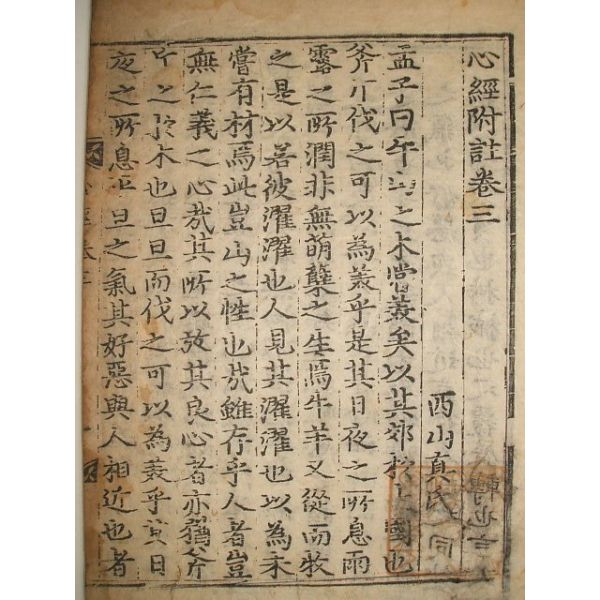 心經附註卷三
西山眞氏
孟子曰牛山之木嘗美矣以其郊於大國也
斧斤伐之可以為美乎是其日夜之所息雨
露之所潤非無萌蘖之生焉牛羊又從而牧
之是以若彼濯濯也人見其濯濯也以為未
嘗有材焉此豈山之性也哉雖存乎人者豈
無仁義之心哉其所以放其良心者亦猶斧
斤之於木也旦旦而伐之可以為美乎其日
夜之所息平旦之氣其好惡與人相近也者